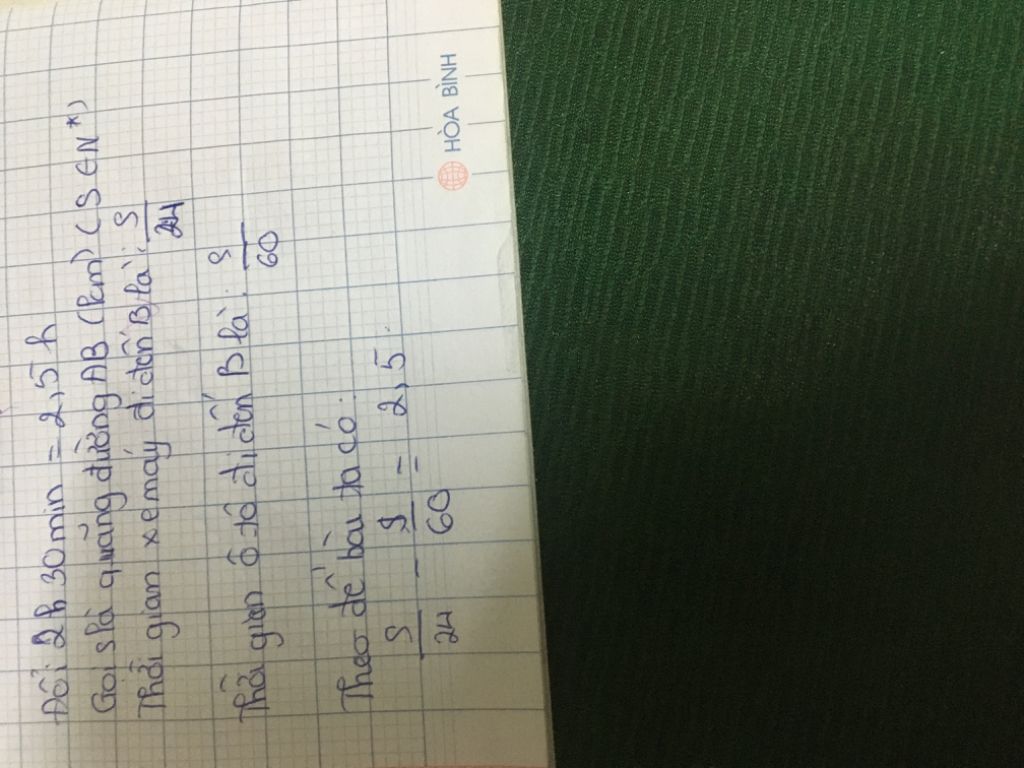 Đổi 2h 30min = 2,5h
Gọi s là quãng đường AB (km) (S ∈ N*)
Thời gian xe máy đi đến B là: S/24
Thời gian ô tô đi đến B là: S/60
Theo đề bài ta có:
S/24 - S/60 = 2,5.
HÒA BÌNH